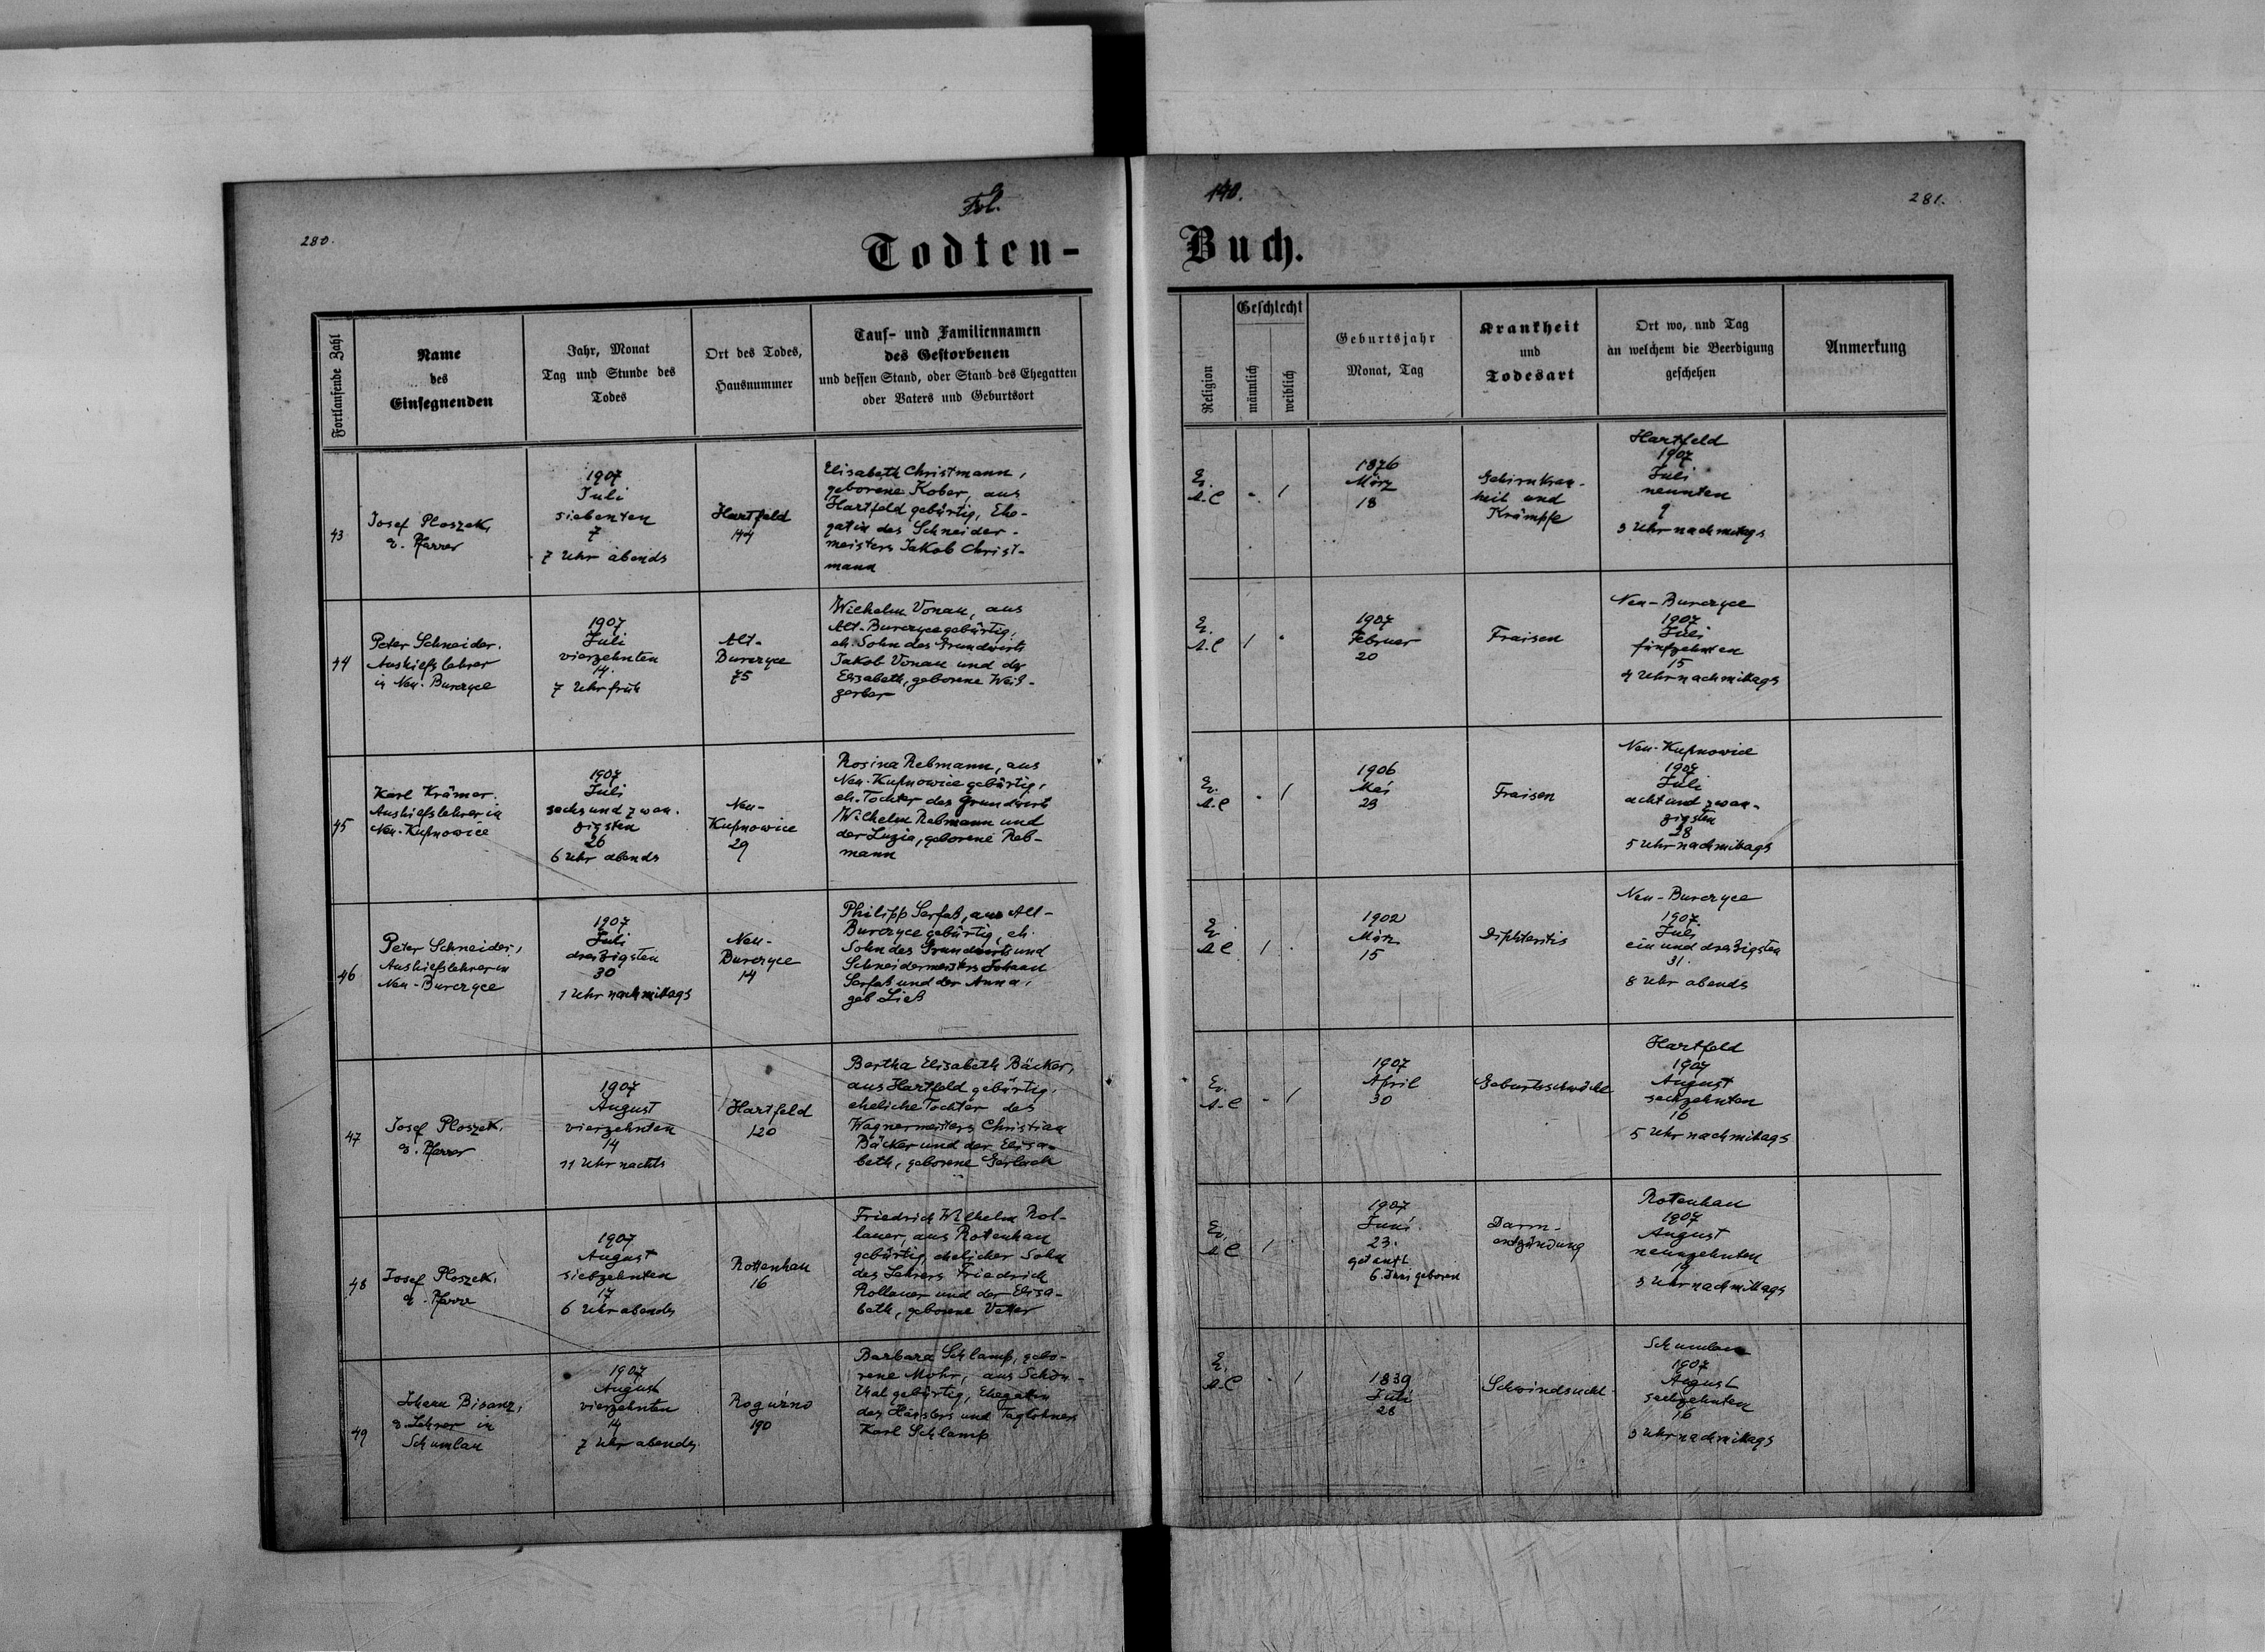 Fol.
140.
280.
281.
Todten-Buch.
Fortlaufende Zahl
Name
des
Einsegnenden
Jahr, Monat
Tag und Stunde des
Todes
Ort des Todes,
Hausnummer
Tauf- und Familiennamen
des Gestorbenen
und dessen Stand, oder Stand des Ehegatten
oder Vaters und Geburtsort
Religion
Geschlecht
männlich
weiblich
Geburtsjahr
Monat, Tag
Krankheit
und
Todesart
Ort wo, und Tag
an welchem die Beerdigung
geschehen
Anmerkung
43
Josef Ploszek,
e. Pfarrer
1907
Juli
siebenten
7
7 Uhr abends
Hartfeld
144
Elisabeth Christmann,
geborene Kober, aus
Hartfeld gebürtig, Ehe-
gatin des Schneider-
meisters Jakob Christ-
mann
Ev.
A.C
- 1
1876
März
18
Gehirnkran-
heit und
Krämpfe
Hartfeld
1907
Juli
neunten
9
3 Uhr nachmitags
44
Peter Schneider.
Aushilfslehrer
in Neu-Burczyce
1907
Juli
vierzehnten
14.
7 Uhr früh
Alt-
Burczyce
75
Wilhelm Vonau, aus
Alt-Burczyce gebürtig,
eh. Sohn des Grundwirts
Jakob Vonau und der
Elisabeth, geborene Weiß-
gerber
Ev.
A.C
1 -
1907
Februer
20
Fraisen
Neu-Burczyce
1907
Juli
fünfzehnten
15
4 Uhr nachmittags
45
Karl Krämer.
Aushilfslehrer in
Neu-Kupnowice
1907
Juli
sechs und zwan-
zigsten
26
6 Uhr abends
Neu-
Kupnowice
29
Rosina Rebmann, aus
Neu-Kupnowice gebürtig,
eh. Tochter des Grundwirts
Wilhelm Rebmann und
der Luzia, geborene Reb-
mann
Ev.
A.C
- 1
1906
Mai
23
Fraisen
Neu-Kupnowice
1907
Juli
acht und zwan-
zigsten
28
5 Uhr nachmittags
46
Peter Schneider,
Aushilfslehrer in
Neu-Burczyce
1907
Juli
dreißigsten
30
1 Uhr nachmittags
Neu-
Burczyce
14
Philipp Serfas, aus Alt-
Burczyce gebürtig, eh.
Sohn des Grundwirts und
Schneidermeisters Johann
Serfas und der Anna,
geb Ließ
Ev.
A C
1 -
1902
März
15
Diphteritis
Neu-Burczyce
1907
Juli
ein und dreißigsten
31.
8 Uhr abends
47
Josef Ploszek.
e. Pfarrer
1907
August
vierzehnten
14
11 Uhr nachts
Hartfeld
120
Bertha Elisabeth Bäcker,
aus Hartfeld gebürtig,
eheliche Tochter des
Wagnermeisters Christian
Bäcker und der Elisa-
beth, geborene Gerlach
Ev.
A-C
- 1
1907
April
30
Geburtsschwäche
Hartfeld
1907
August
sechzehnten
16
5 Uhr nachmittags
48
Josef Ploszek.
e. Pfarrer
1907
August
siebzehnten
17
6 Uhr abends
Rottenhan
16
Friedrich Wilhelm Rol-
lauer, aus Rottenhan
gebürtig, ehelicher Sohn
des Lehrers Friedrich
Rollauer und der Elisa-
beth, geborene Vetter
Ev.
A C
1 -
1907
Juni
23.
getauft
6. Juni geboren
Darm-
entzündung
Rottenhan
1907
August
neunzehnten
19
3 Uhr nachmittags
49
Johann Bisanz,
e. Lehrer in
Schumlau
1907
August
vierzehnten
14
7 Uhr abends
Rogużno
190
Barbara Schlamp, gebo-
rene Mohr, aus Schön-
thal gebürtig, Ehegattin
des Häuslers und Taglöhners
Karl Schlamp
Ev.
A.C
- 1
1839
Juli
28
Schwindsucht
Schumlau
1907
August
sechzehnten
16
3 Uhr nachmittags